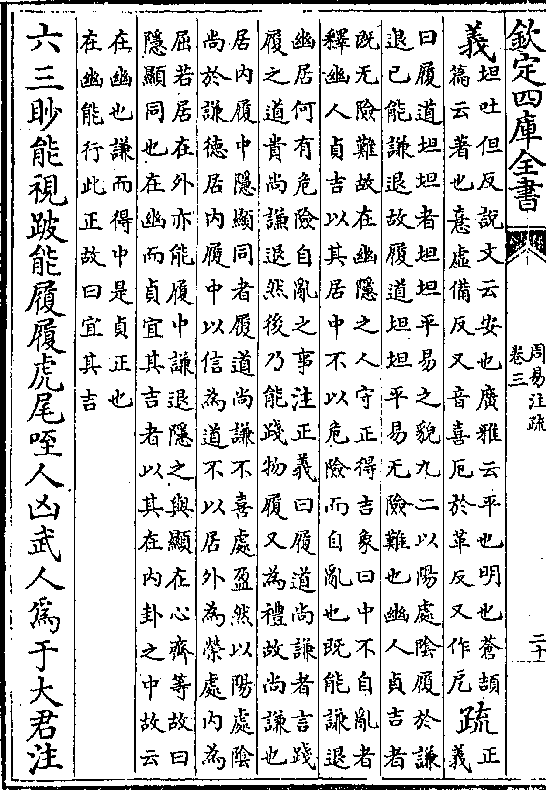 欽定四庫全書
周易注疏
卷三
二十
義
坦吐但反説文云安也廣雅云平也明也蒼頡
篇云著也憙虛備反又音喜厄於革反又作戹
疏
正
義
曰履道坦坦者坦坦平易之貌九二以陽處陰履於謙
退已能謙退故履道坦坦平易无險難也幽人貞吉者
既无險難故在幽隱之人守正得吉象曰中不自亂者
釋幽人貞吉以其居中不以危險而自亂也既能謙退
幽居何有危險自亂之事注正義曰履道尚謙者言踐
履之道貴尚謙退然後乃能踐物履又為禮故尚謙也
居內履中隱顯同者履道尚謙不喜處盈然以陽處陰
尚於謙德居內履中以信為道不以居外為榮處內為
屈若居在外亦能履中謙退隱之與顯在心齊等故曰
隱顯同也在幽而貞宜其吉者以其在內卦之中故云
在幽也謙而得中是貞正也
在幽能行此正故曰宜其吉
六三眇能視跛能履履虎尾咥人凶武人爲于大君注